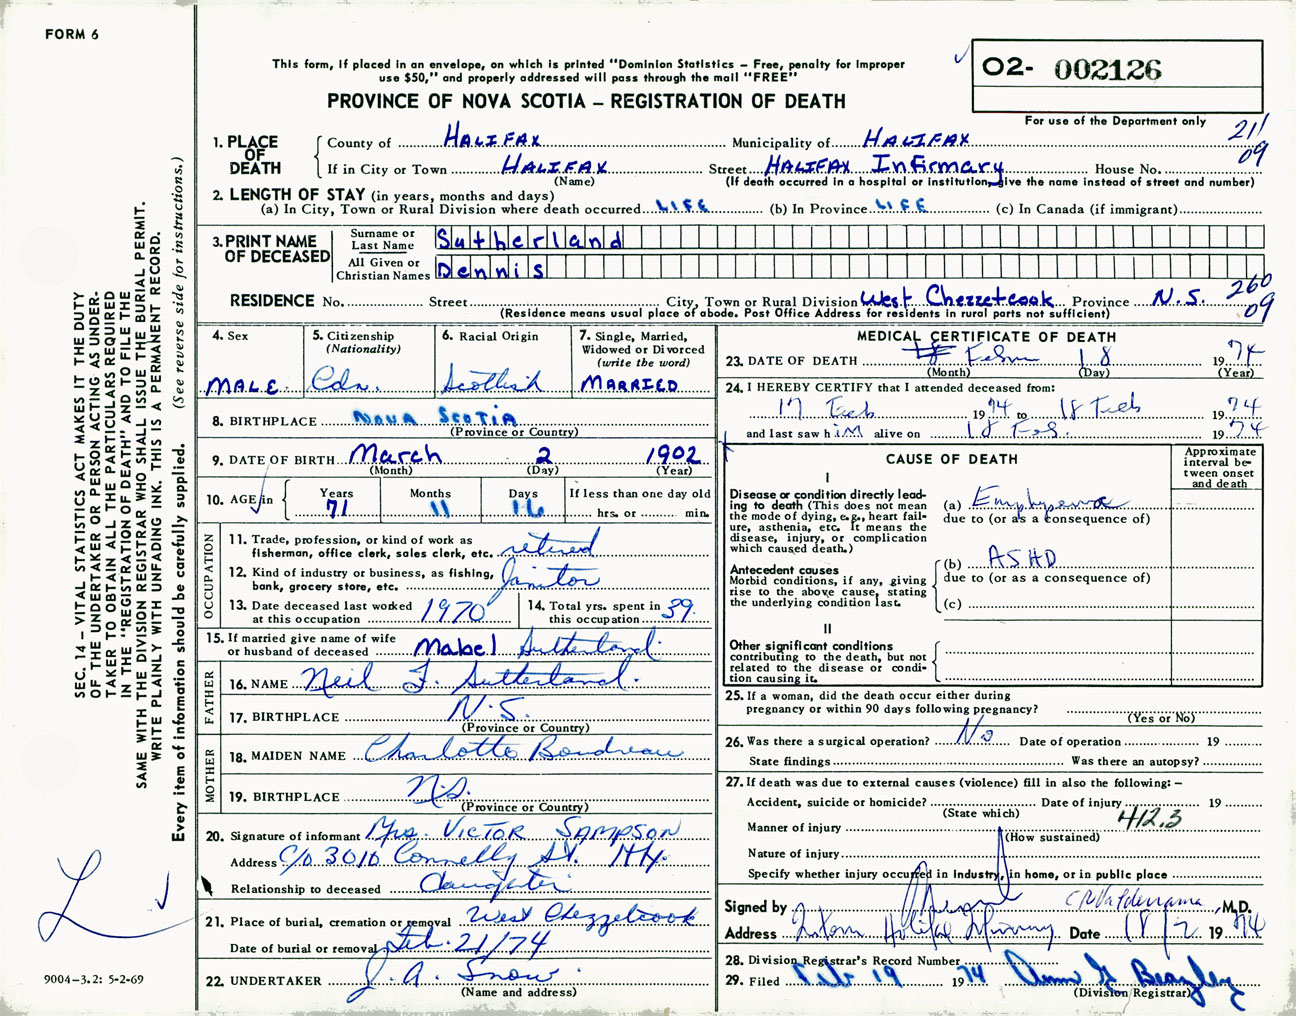 FORM 6
This form, if placed in an envelope, on which is printed "Dominion Statistics – Free, penalty for improper
use $50," and properly addressed will pass through the mail "FREE"
PROVINCE OF NOVA SCOTIA – REGISTRATION OF DEATH
02- 002126
For use of the Department only
211
09
1. PLACE OF DEATH
County of HALIFAX Municipality of HALIFAX
If in City or Town HALIFAX Street HALIFAX Infirmary House No.
(Name) (If death occurred in a hospital or institution, give the name instead of street and number)
2. LENGTH OF STAY (in years, months and days)
(a) In City, Town or Rural Division where death occurred LIFE (b) In Province LIFE (c) In Canada (if immigrant)
3. PRINT NAME OF DECEASED
Surname or Last Name Sutherland
All Given or Christian Names Dennis
260
09
RESIDENCE No. Street City, Town or Rural Division West Chezzetcook Province N.S.
(Residence means usual place of abode. Post Office Address for residents in rural parts not sufficient)
4. Sex MALE
5. Citizenship (Nationality) Cdn.
6. Racial Origin Scottish
7. Single, Married, Widowed or Divorced (write the word) MARRIED
8. BIRTHPLACE NOVA SCOTIA
(Province or Country)
9. DATE OF BIRTH March 2 1902
(Month) (Day) (Year)
10. AGE in Years 71 Months 11 Days 16 If less than one day old hrs. or min.
OCCUPATION
11. Trade, profession, or kind of work as
fisherman, office clerk, sales clerk, etc. retired
12. Kind of industry or business, as fishing,
bank, grocery store, etc. Janitor
13. Date deceased last worked at this occupation 1970
14. Total yrs. spent in this occupation 39
15. If married give name of wife
or husband of deceased Mabel Sutherland
FATHER
16. NAME Neil F. Sutherland.
17. BIRTHPLACE N.S.
(Province or Country)
MOTHER
18. MAIDEN NAME Charlotte Boudreau
19. BIRTHPLACE N.S.
(Province or Country)
20. Signature of informant Mrs. VICTOR SAMPSON
Address C/O 3010 Connelly St. Hfx.
Relationship to deceased daughter
21. Place of burial, cremation or removal West Chezzetcook
Date of burial or removal Feb. 21/74
22. UNDERTAKER J. A. Snow.
(Name and address)
MEDICAL CERTIFICATE OF DEATH
23. DATE OF DEATH 18 1974
(Month) (Day) (Year)
24. I HEREBY CERTIFY that I attended deceased from:
17 Feb 1974 to 18 Feb 1974
and last saw him alive on 18 Feb. 1974
CAUSE OF DEATH
Approximate interval between onset and death
I
Disease or condition directly leading to death (This does not mean the mode of dying, e.g., heart failure, asthenia, etc. It means the disease, injury, or complication which caused death.)
(a) Emphysema
due to (or as a consequence of)
Antecedent causes
Morbid conditions, if any, giving rise to the above cause, stating the underlying condition last.
(b) ASHD
due to (or as a consequence of)
(c)
II
Other significant conditions contributing to the death, but not related to the disease or condition causing it.
25. If a woman, did the death occur either during
pregnancy or within 90 days following pregnancy?
(Yes or No)
26. Was there a surgical operation? No Date of operation 19
State findings Was there an autopsy?
27. If death was due to external causes (violence) fill in also the following: –
Accident, suicide or homicide? Date of injury 19
(State which)
412.3
Manner of injury
(How sustained)
Nature of injury
Specify whether injury occurred in Industry, in home, or in public place
Signed by C R Valderrama, M.D.
Address Intern Halifax Infirmary Date 18/2 1974
28. Division Registrar's Record Number
29. Filed Feb 19 1974
(Division Registrar)
SEC. 14 – VITAL STATISTICS ACT MAKES IT THE DUTY
OF THE UNDERTAKER OR PERSON ACTING AS UNDER-
TAKER TO OBTAIN ALL THE PARTICULARS REQUIRED
IN THE "REGISTRATION OF DEATH" AND TO FILE THE
SAME WITH THE DIVISION REGISTRAR WHO SHALL ISSUE THE BURIAL PERMIT.
WRITE PLAINLY WITH UNFADING INK. THIS IS A PERMANENT RECORD.
Every item of information should be carefully supplied. (See reverse side for instructions.)
9004-3.2: 5-2-69